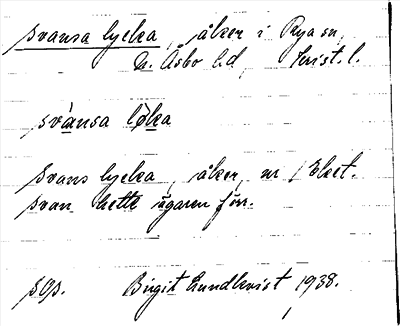 svansa lycka, åker i Rya sn,
N. Åsbo hd, Krist. l.
svànsa lø̀ka
Svans lycka, åker, nr 1 Eket.
Svan hette ägaren förr.
sgs. Birgit Lundkvist 1938.